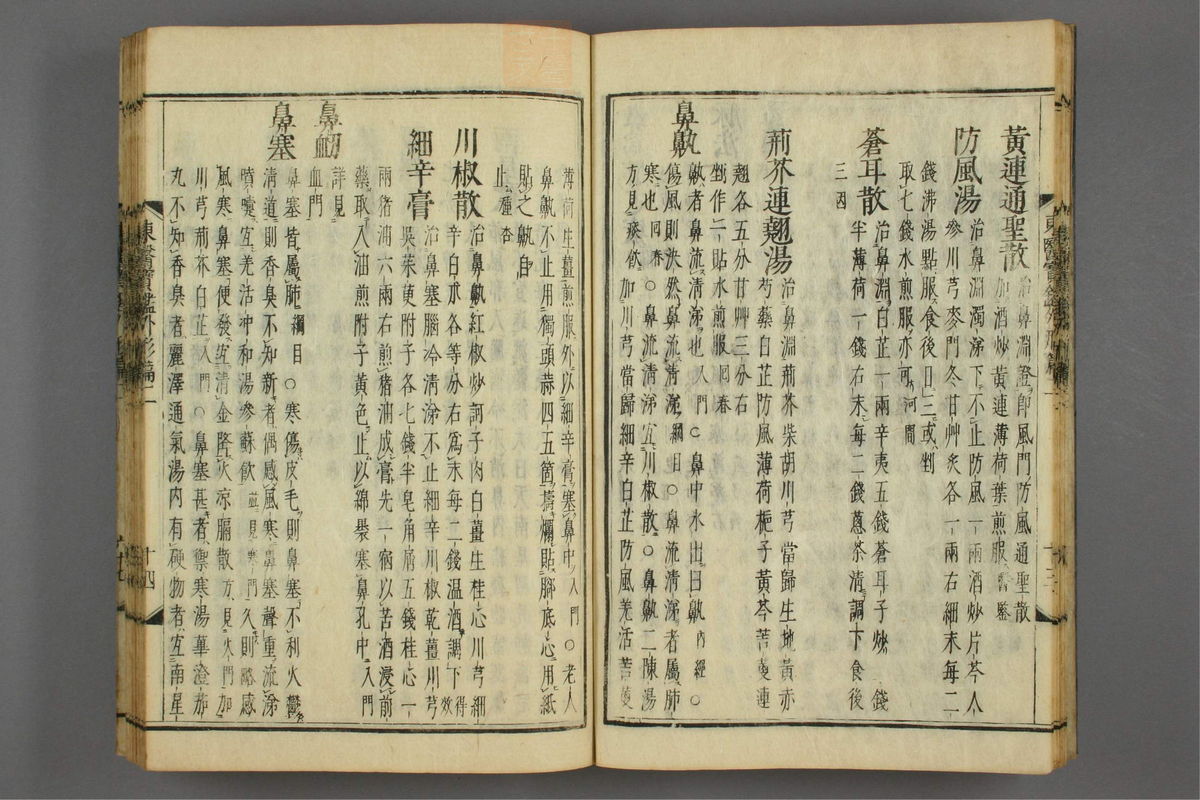 黃連通聖散 治鼻淵證卽風門防風通聖散
加酒炒黃連薄荷葉煎服 醫鑒
防風湯 治鼻淵濁涕下不止防風一兩酒炒片芩人
參川芎麥門冬甘艸炙各一兩右細末每二
錢沸湯點服食後日三或剉
取七錢水煎服亦可 河間
蒼耳散 治鼻淵白芷一兩辛夷五錢蒼耳子炒 錢
半薄荷一錢右末每二錢蔥茶淸調下食後
三因
荊芥連翹湯 治鼻淵荊芥柴胡川芎當歸生地黃赤
芍藥白芷防風薄荷梔子黃芩苦莄連
翹各五分甘艸三分右
剉作一貼水煎服 回春
鼻鼽 鼽者鼻流淸涕也 入門 ○鼻中水出曰鼽 內經 ○
傷風則決然鼻流淸涕 綱目 ○鼻流淸涕者屬肺
寒也 回春 ○鼻流淸涕宜川椒散○鼻鼽二陳湯
方見痰飮 加川芎當歸細辛白芷防風羌活苦莄
薄荷生薑煎服外以細辛膏塞鼻中 入門 ○老人
鼻鼽不止用獨頭蒜四五箇擣爛貼腳底心用紙
貼之鼽自
止 種杏
川椒散 治鼻鼽紅椒炒訶子肉白薑生桂心川芎細
辛白朮各等分右爲末每二錢溫酒調下 得效
細辛膏 治鼻塞腦冷淸涕不止細辛川椒乾薑川芎
吳茱萸附子各七錢半皂角屑五錢桂心一
兩猪油六兩右煎猪油成膏先一宿以苦酒浸前
藥取入油煎附子黃色止以綿裹塞鼻孔中 入門
鼻衄 詳見
血門
鼻塞 鼻塞皆屬肺 綱目 ○寒傷皮毛則鼻塞不利火鬱
淸道則香臭不知新者偶感風寒鼻塞聲重流涕
噴嚏宜羌活冲和湯參蘇飮 並見寒門 久則略感
風寒鼻塞便發宜淸金降火涼膈散 方見火門 加
川芎荊芥白芷 入門 ○鼻塞甚者禦寒湯蓽澄茄
丸不知香臭者麗澤通氣湯內有硬物者宜南星
東醫寶鑑外形篇二
十三
東醫寶鑑外形篇二
十四